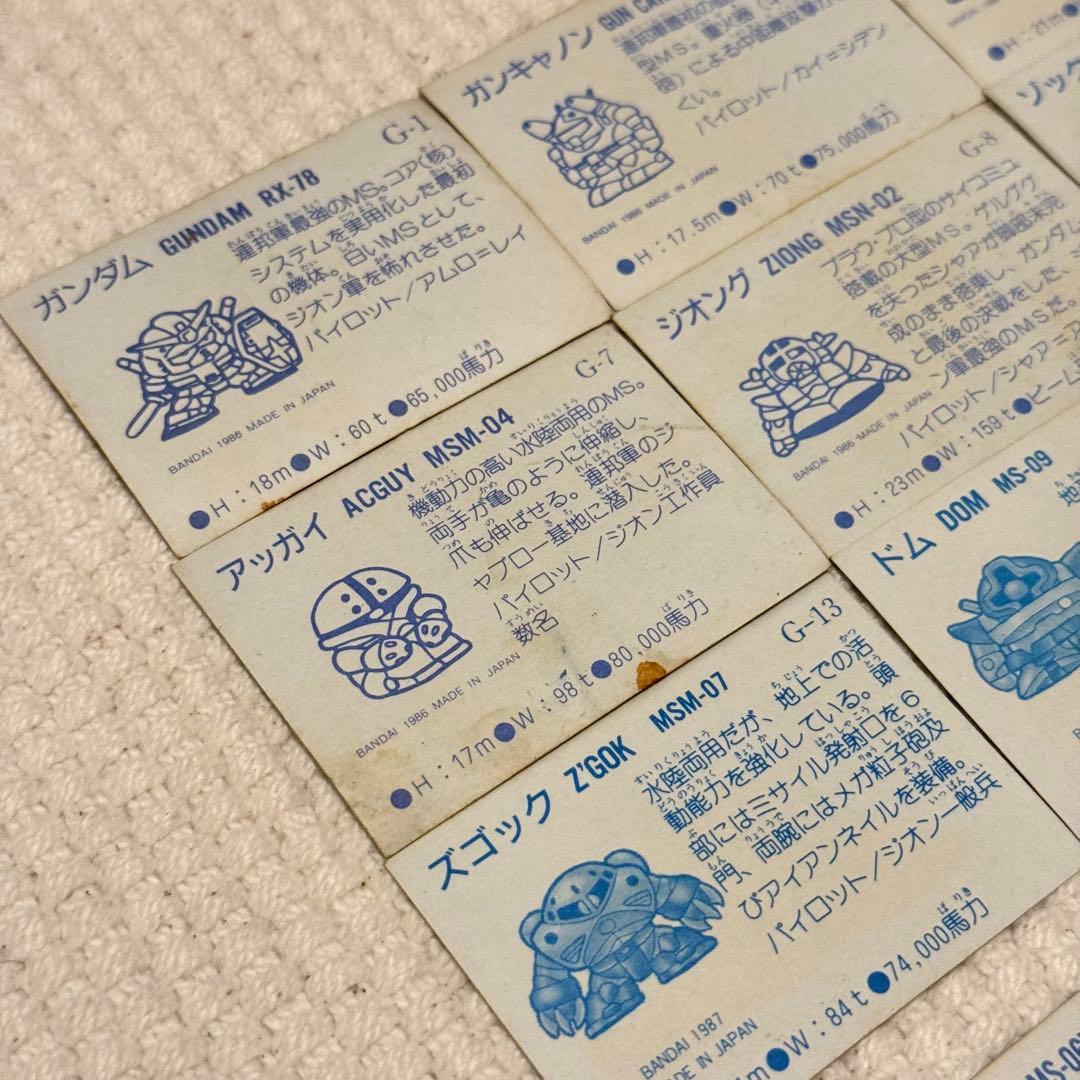 G-1
ガンダム GUNDAM RX-78
連邦軍最強のMS。コア(核)
システムを実用化した最初
の機体。白いMSとして、
ジオン軍を怖れさせた。
パイロット/アムロ=レイ
BANDAI 1986 MADE IN JAPAN
●H:18m●W:60t●65,000馬力
ガンキャノン GUN
型MS。
による中距離攻撃
くい。
パイロット/カイ=シデン
BANDAI 1986 MADE IN JAPAN
●H:17.5m●W:70t●75,000馬力
●H:21m
G-7
アッガイ ACGUY MSM-04
機動力の高い水陸両用のMS。
両手が亀のように伸縮し、
爪も伸ばせる。連邦軍のジ
ャブロー基地に潜入した。
パイロット/ジオン工作員
数名
BANDAI 1986 MADE IN JAPAN
●H:17m●W:98t●80,000馬力
G-8
ジオング ZIONG MSN-02
ブラウ・ブロ型のサイコミュ
搭載の大型MS。ゲルググ
を失ったシャアが脚部未完
成のまま搭乗し、ガンダム
と最後の決戦をした、ジ
ン軍最強のMSだ。
パイロット/シャア=ア
BANDAI 1986 MADE IN JAPAN
●H:23m●W:159t●ビーム
ゾック
G-13
ズゴック Z'GOK MSM-07
水陸両用だが、地上での活
動能力を強化している。頭
部にはミサイル発射口を6
門、両腕にはメガ粒子砲及
びアイアンネイルを装備。
パイロット/ジオン一般兵
BANDAI 1987
MADE IN JAPAN
m●W:84t●74,000馬力
ドム DOM MS-09
地